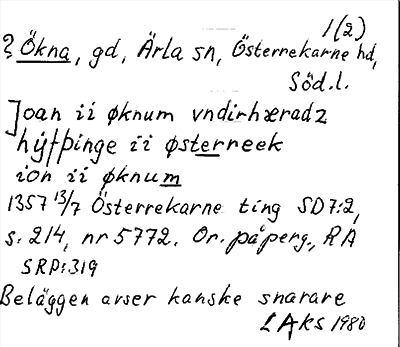 1(2)
? Ökna, gd, Ärla sn, Österrekarne hd,
Söd.l.
Joan ii øknum vndirhæradz
hyfþinge ii østerreek
ion ii øknum
1357 13/7 Österrekarne ting SD7:2,
s. 214, nr 5772. Or. på perg., RA
SRP:319
Beläggen avser kanske snarare
LAKS 1980